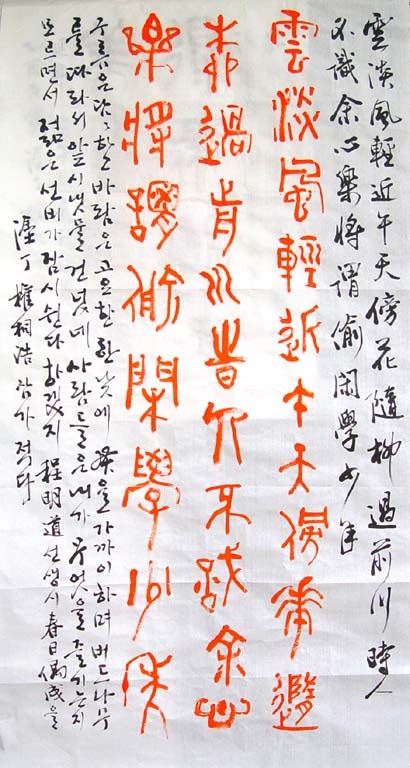 雲淡風輕近午天傍花隨柳過前川時人
不識余心樂將謂偷閑學少年
雲淡風輕近午天傍花隨
柳過前川時人不識余心
樂將謂偷閑學少年
구름은 담〻하고 바람은 고요한 한낮에 꽃을 가까이 하며 버드나무
를 따라서 앞 시냇물 건넜네 사람들은 내가 무엇을 즐기는지
모르면서 젊은 선비가 잠시 쉰다 하겠지 程明道先生시 春日偶成을
塗丁 權相浩 삼가 적다